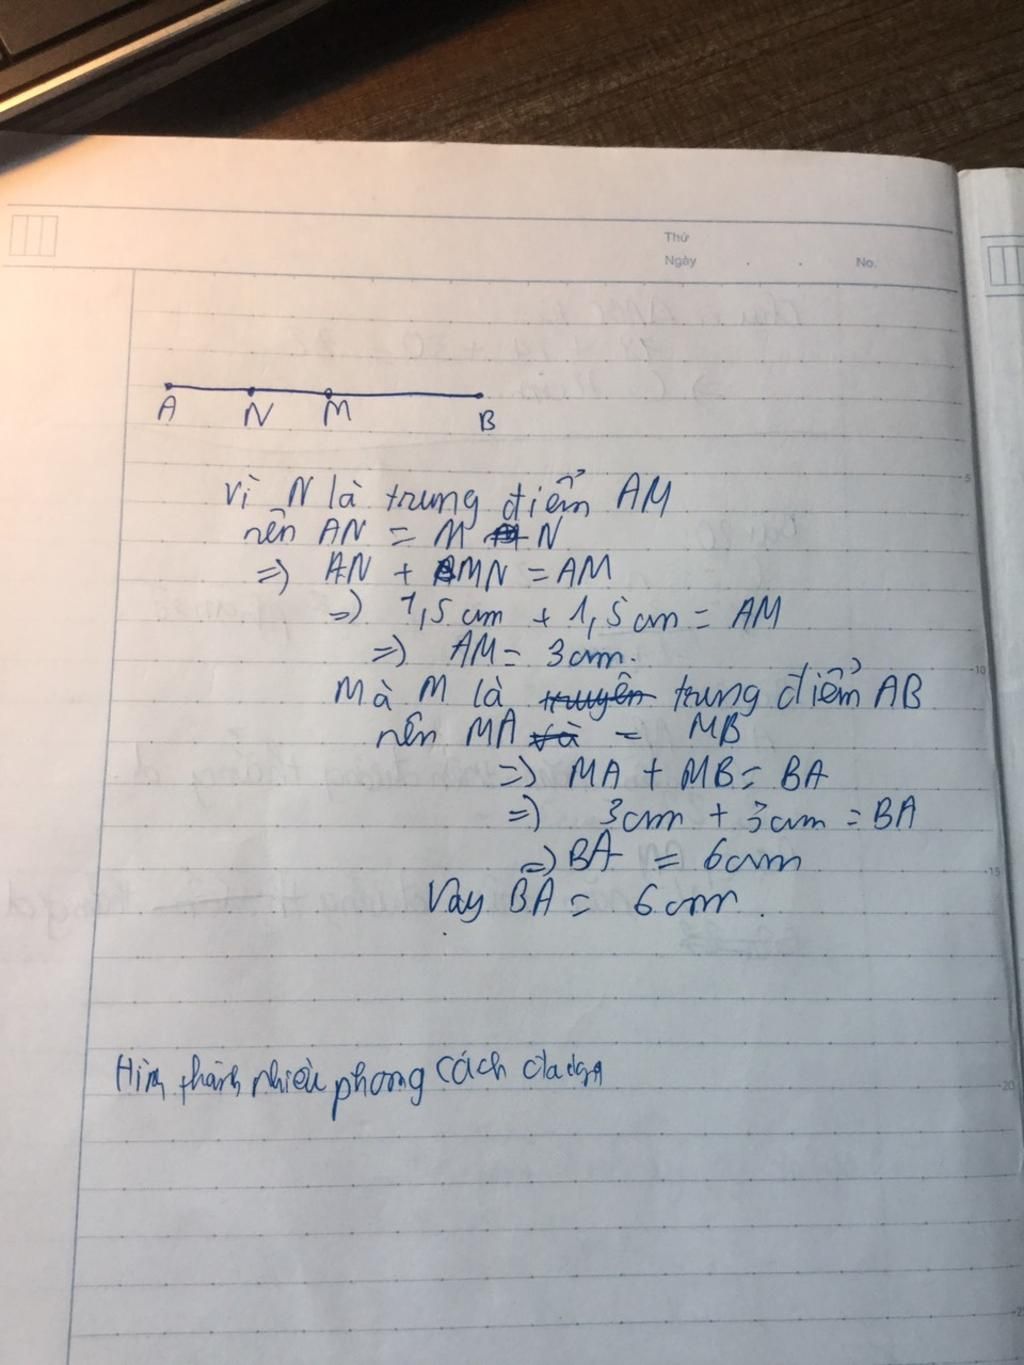 Thứ
Ngày . . No.
A N M B
Vì N là trung điểm AM
nên AN = M N
=) AN + MN = AM
=) 1,5 cm + 1,5 cm = AM
=) AM = 3cm.
Mà M là truyên trung điểm AB
nên MA và = MB
=) MA + MB = BA
=) 3cm + 3cm = BA
=) BA = 6cm
Vay BA = 6cm.
Hình thành nhiều phong cách
5
10
15
20